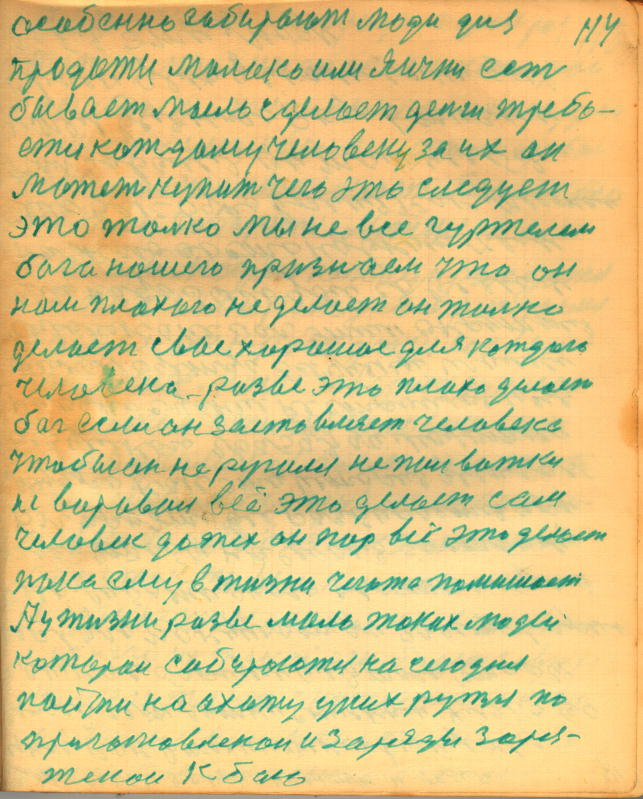 особенно собирают люди для 114
продажи молоко или яички сот
бывает мало сделает денги требо-
сти каждому человеку за их он
может купит чего это следует
это толко мы не все
бога нашего признаем что он
нам плохого не делает он толко
делает свое хорошое для каждого
человека разве это плохо делает
бог если он заставляет человека
чтобы он не ругался не пил вотки
не воровал всё это делает сам
человек до тех он пор всё это делает
пока ему в жизни чегота помишает
А у жизни разве мало таких людей
которои собираются на сегодня
пойти на охоту у них ружья по
приготовленои и заряды заря-
женои к бою